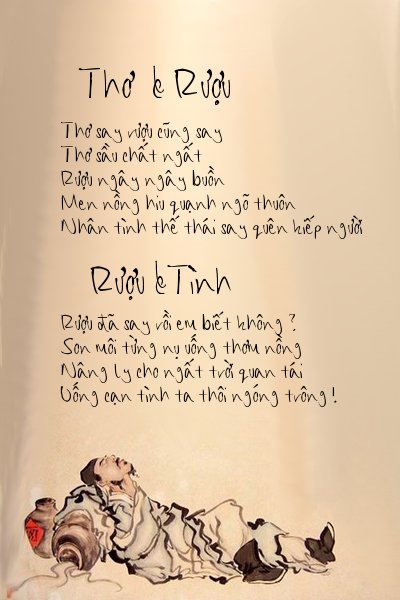 Thơ & Rượu
Thơ say rượu cũng say
Thơ sầu chất ngất
Rượu ngây ngây buồn
Men nồng hiu quạnh ngõ thuôn
Nhân tình thế thái say quên kiếp người
Rượu & Tình
Rượu đã say rồi em biết không ?
Son môi từng nụ uống thơm nồng
Nâng ly cho ngất trời quan tái
Uống cạn tình ta thôi ngóng trông !